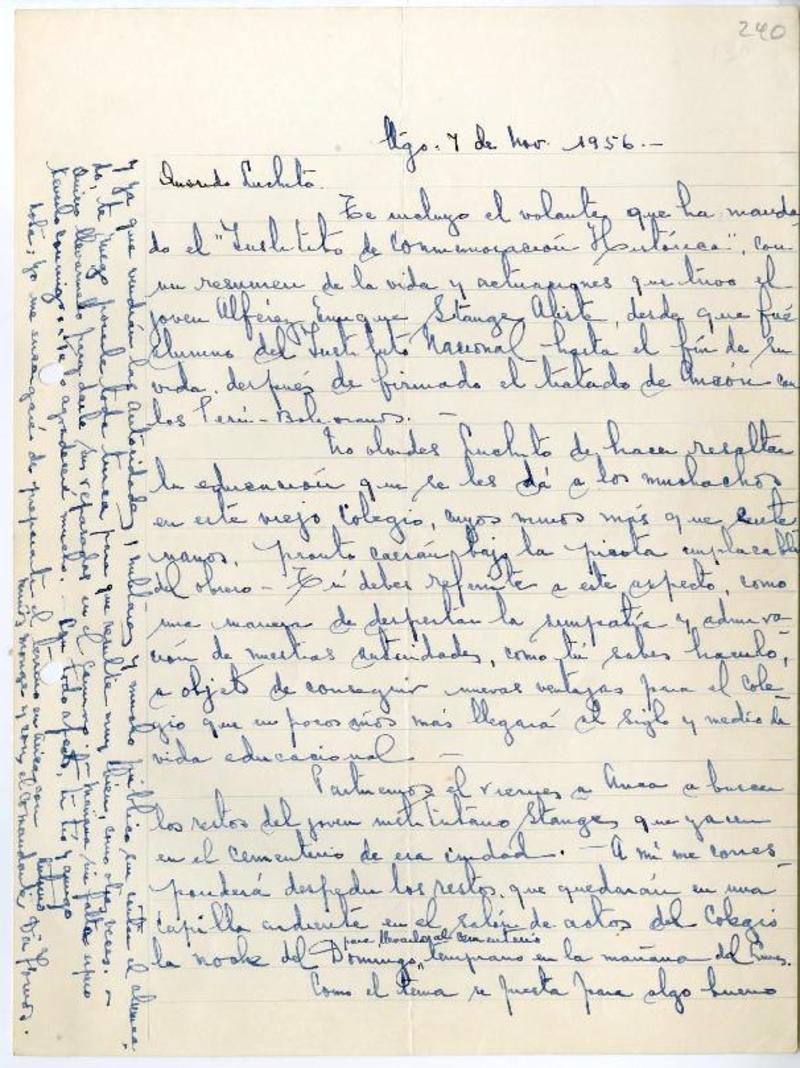 240
Stgo. 7 de Nov. 1956.-
Querido Luchito.
Te incluyo el volante, que ha manda-
do el "Instituto de Conmemoración Histórica", con
un resumen de la vida y actuaciones que tuvo el
joven Alférez Enrique Stange Aliste, desde que fué
Alumno del Instituto Nacional hasta el fin de su
vida, después de firmado el tratado de Ancón con
los Perú-Bolivianos. -
No olvides Luchito de hacer resaltar
la educación que se les dá a los muchachos
en este viejo Colegio, cuyos muros más que cente
narios, pronto caerán bajo la picota implacable
del obrero - Tú debes referirte a este aspecto, como
una manera de despertar la simpatía y admira
ción de nuestras autoridades, como tú sabes hacerlo,
a objeto de conseguir nuevas ventajas para el cole-
gio que en pocos años más llegará al siglo y medio de
vida educacional. -
Partiremos el viernes a Arica a buscar
los restos del joven institutano Stange, que yacen
en el cementerio de esa ciudad. - A mí me corres-
ponderá despedir los restos, que quedarán en una
capilla ardiente en el salón de actos del Colegio
la noche del Domingo, para llevarlos al cementerio temprano en la mañana del Lunes.
Como el tema se presta para algo bueno
y ya que vendrán las autoridades, militares y mucho público sin contar el alumna-
do, te ruego pongas toda tinca para que resulte muy bien, como otras veces. -
Quiero llevármelo para darle sus repasadas en el camino. - mañana sin falta
tenerlo conmigo. Te lo agradeceré mucho. - Con todo afecto, tu tío y amigo
Nota; yo me encargaré de preparar el terreno en Arica con
Muñoz Monge y con el comandante